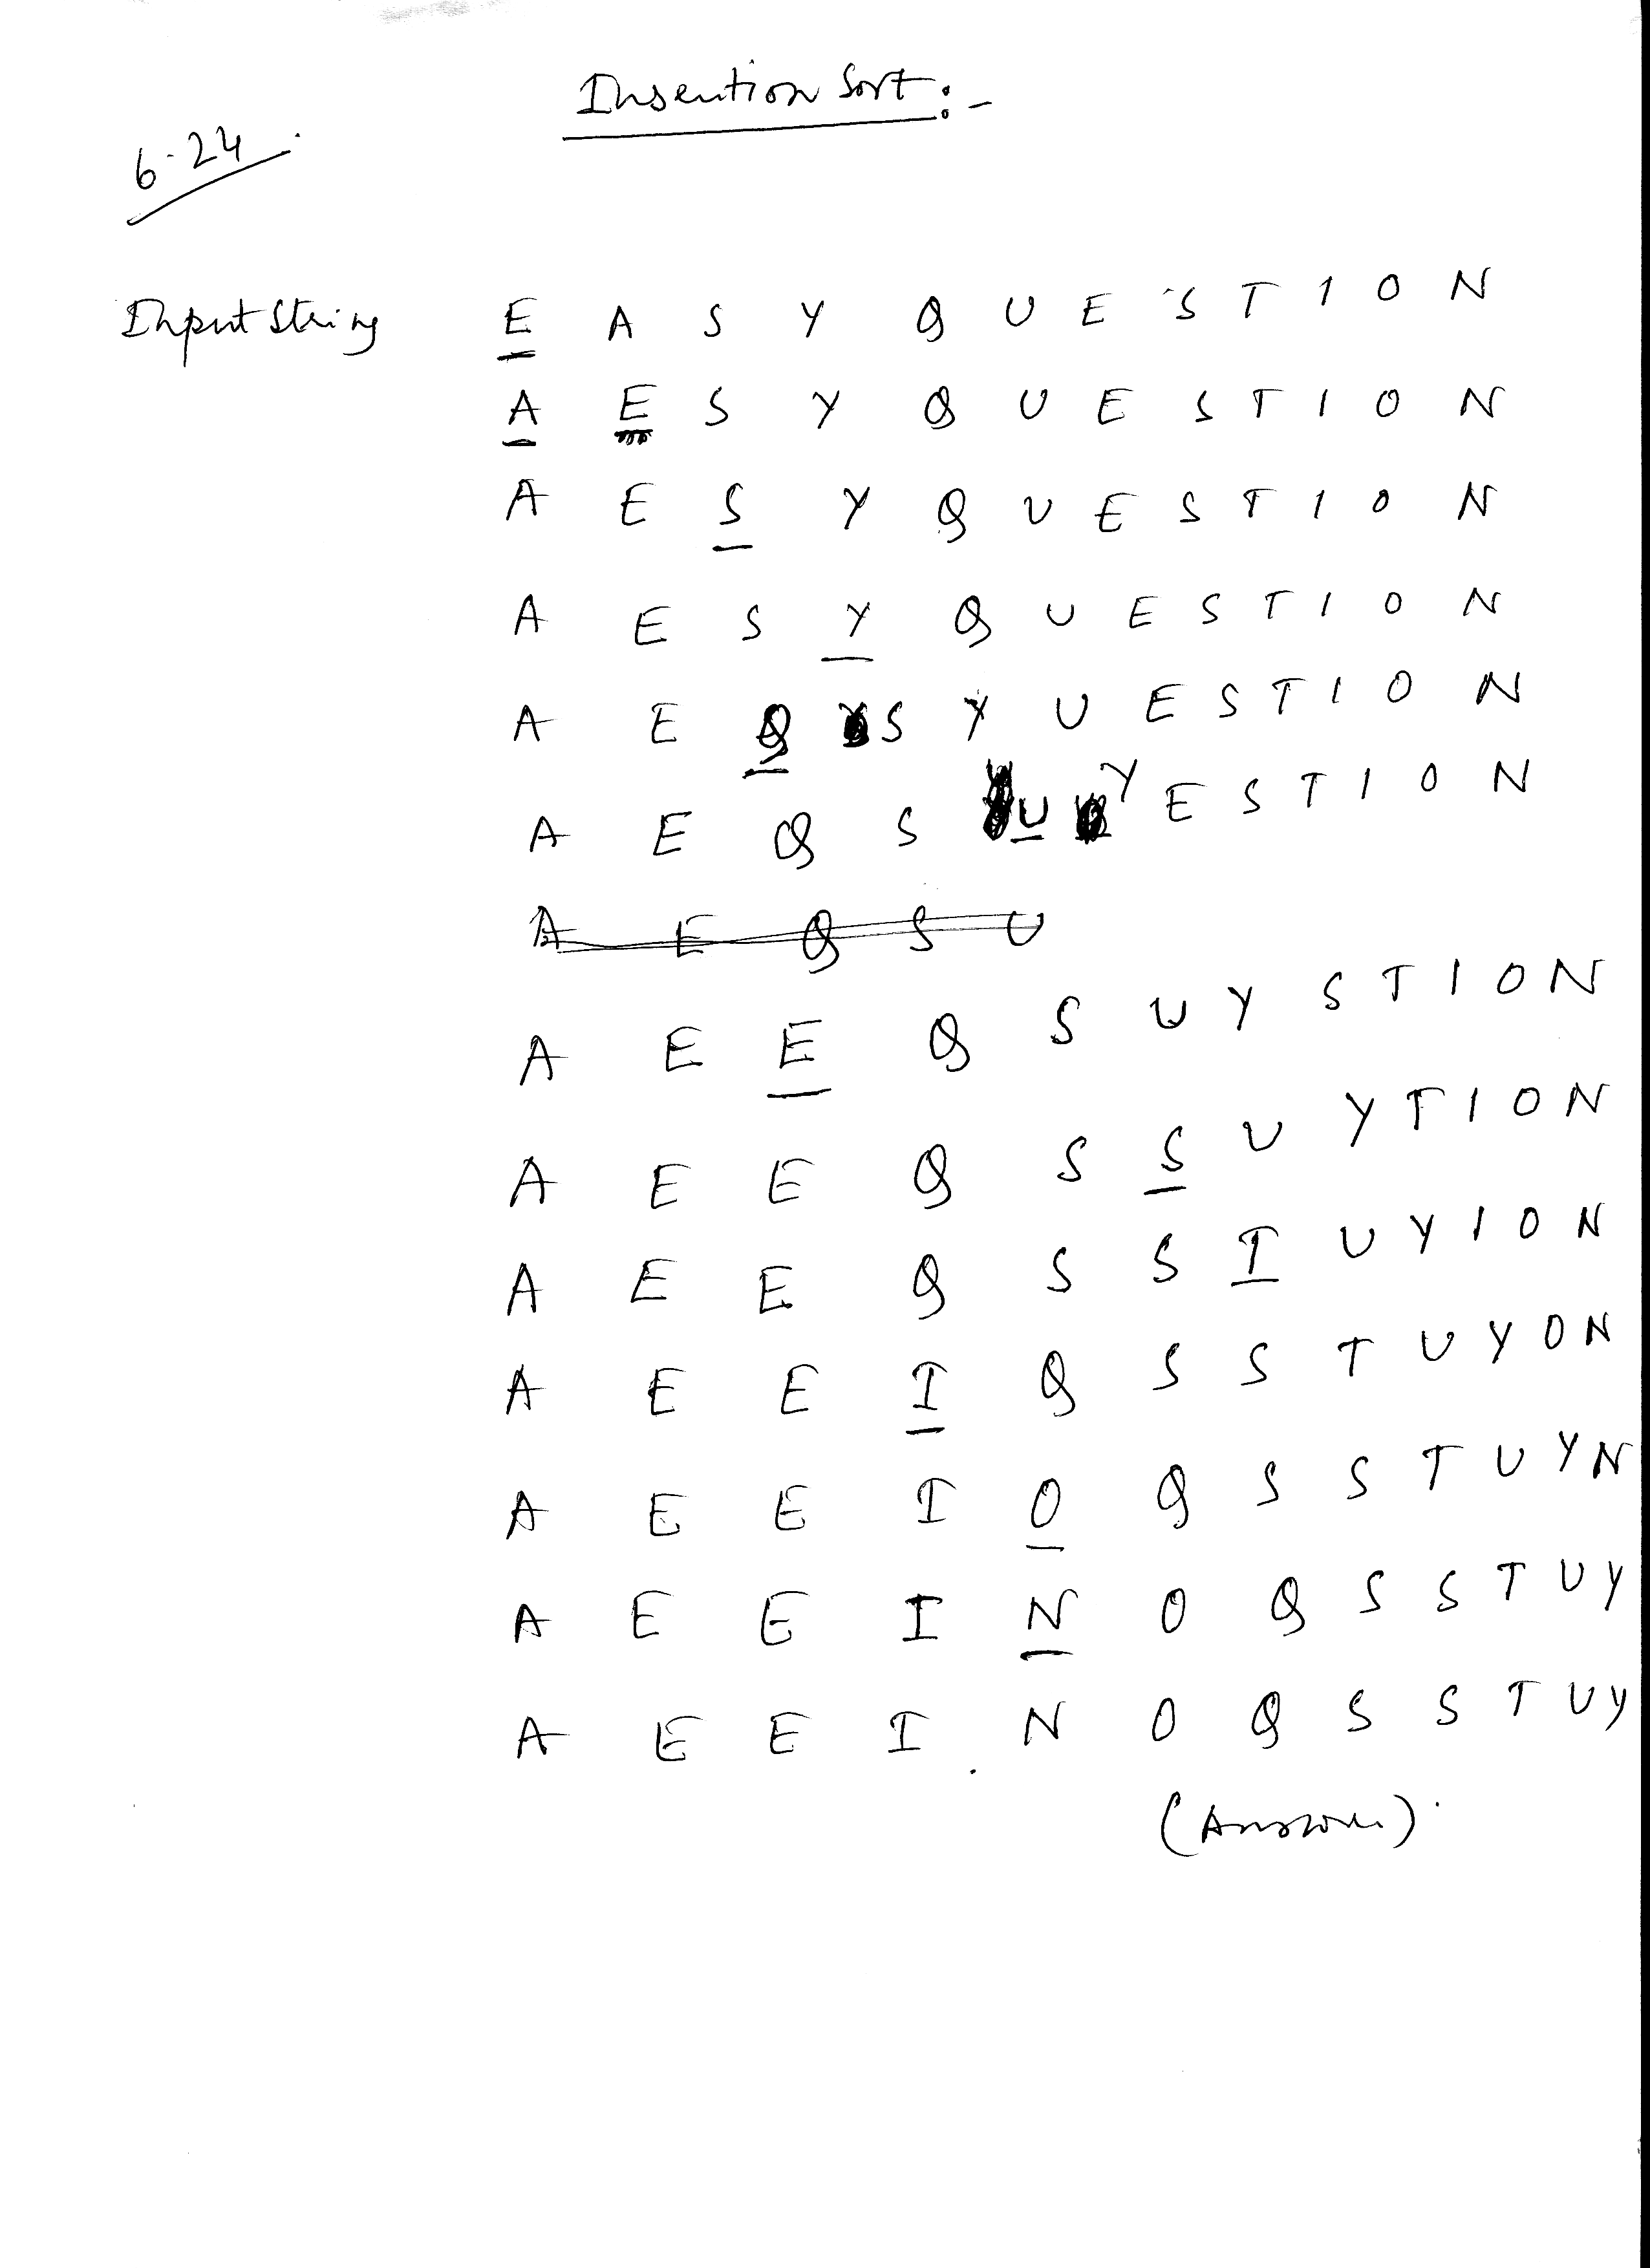 Insertion Sort :-
6.24
Input String E A S Y Q U E S T I O N
A E S Y Q U E S T I O N
A E S Y Q U E S T I O N
A E S Y Q U E S T I O N
A E Q S Y U E S T I O N
A E Q S U Y E S T I O N
A E Q S U
A E E Q S U Y S T I O N
A E E Q S S U Y T I O N
A E E Q S S I U Y I O N
A E E I Q S S T U Y O N
A E E I O Q S S T U Y N
A E E I N O Q S S T U Y
A E E I N O Q S S T U Y
(Answer).